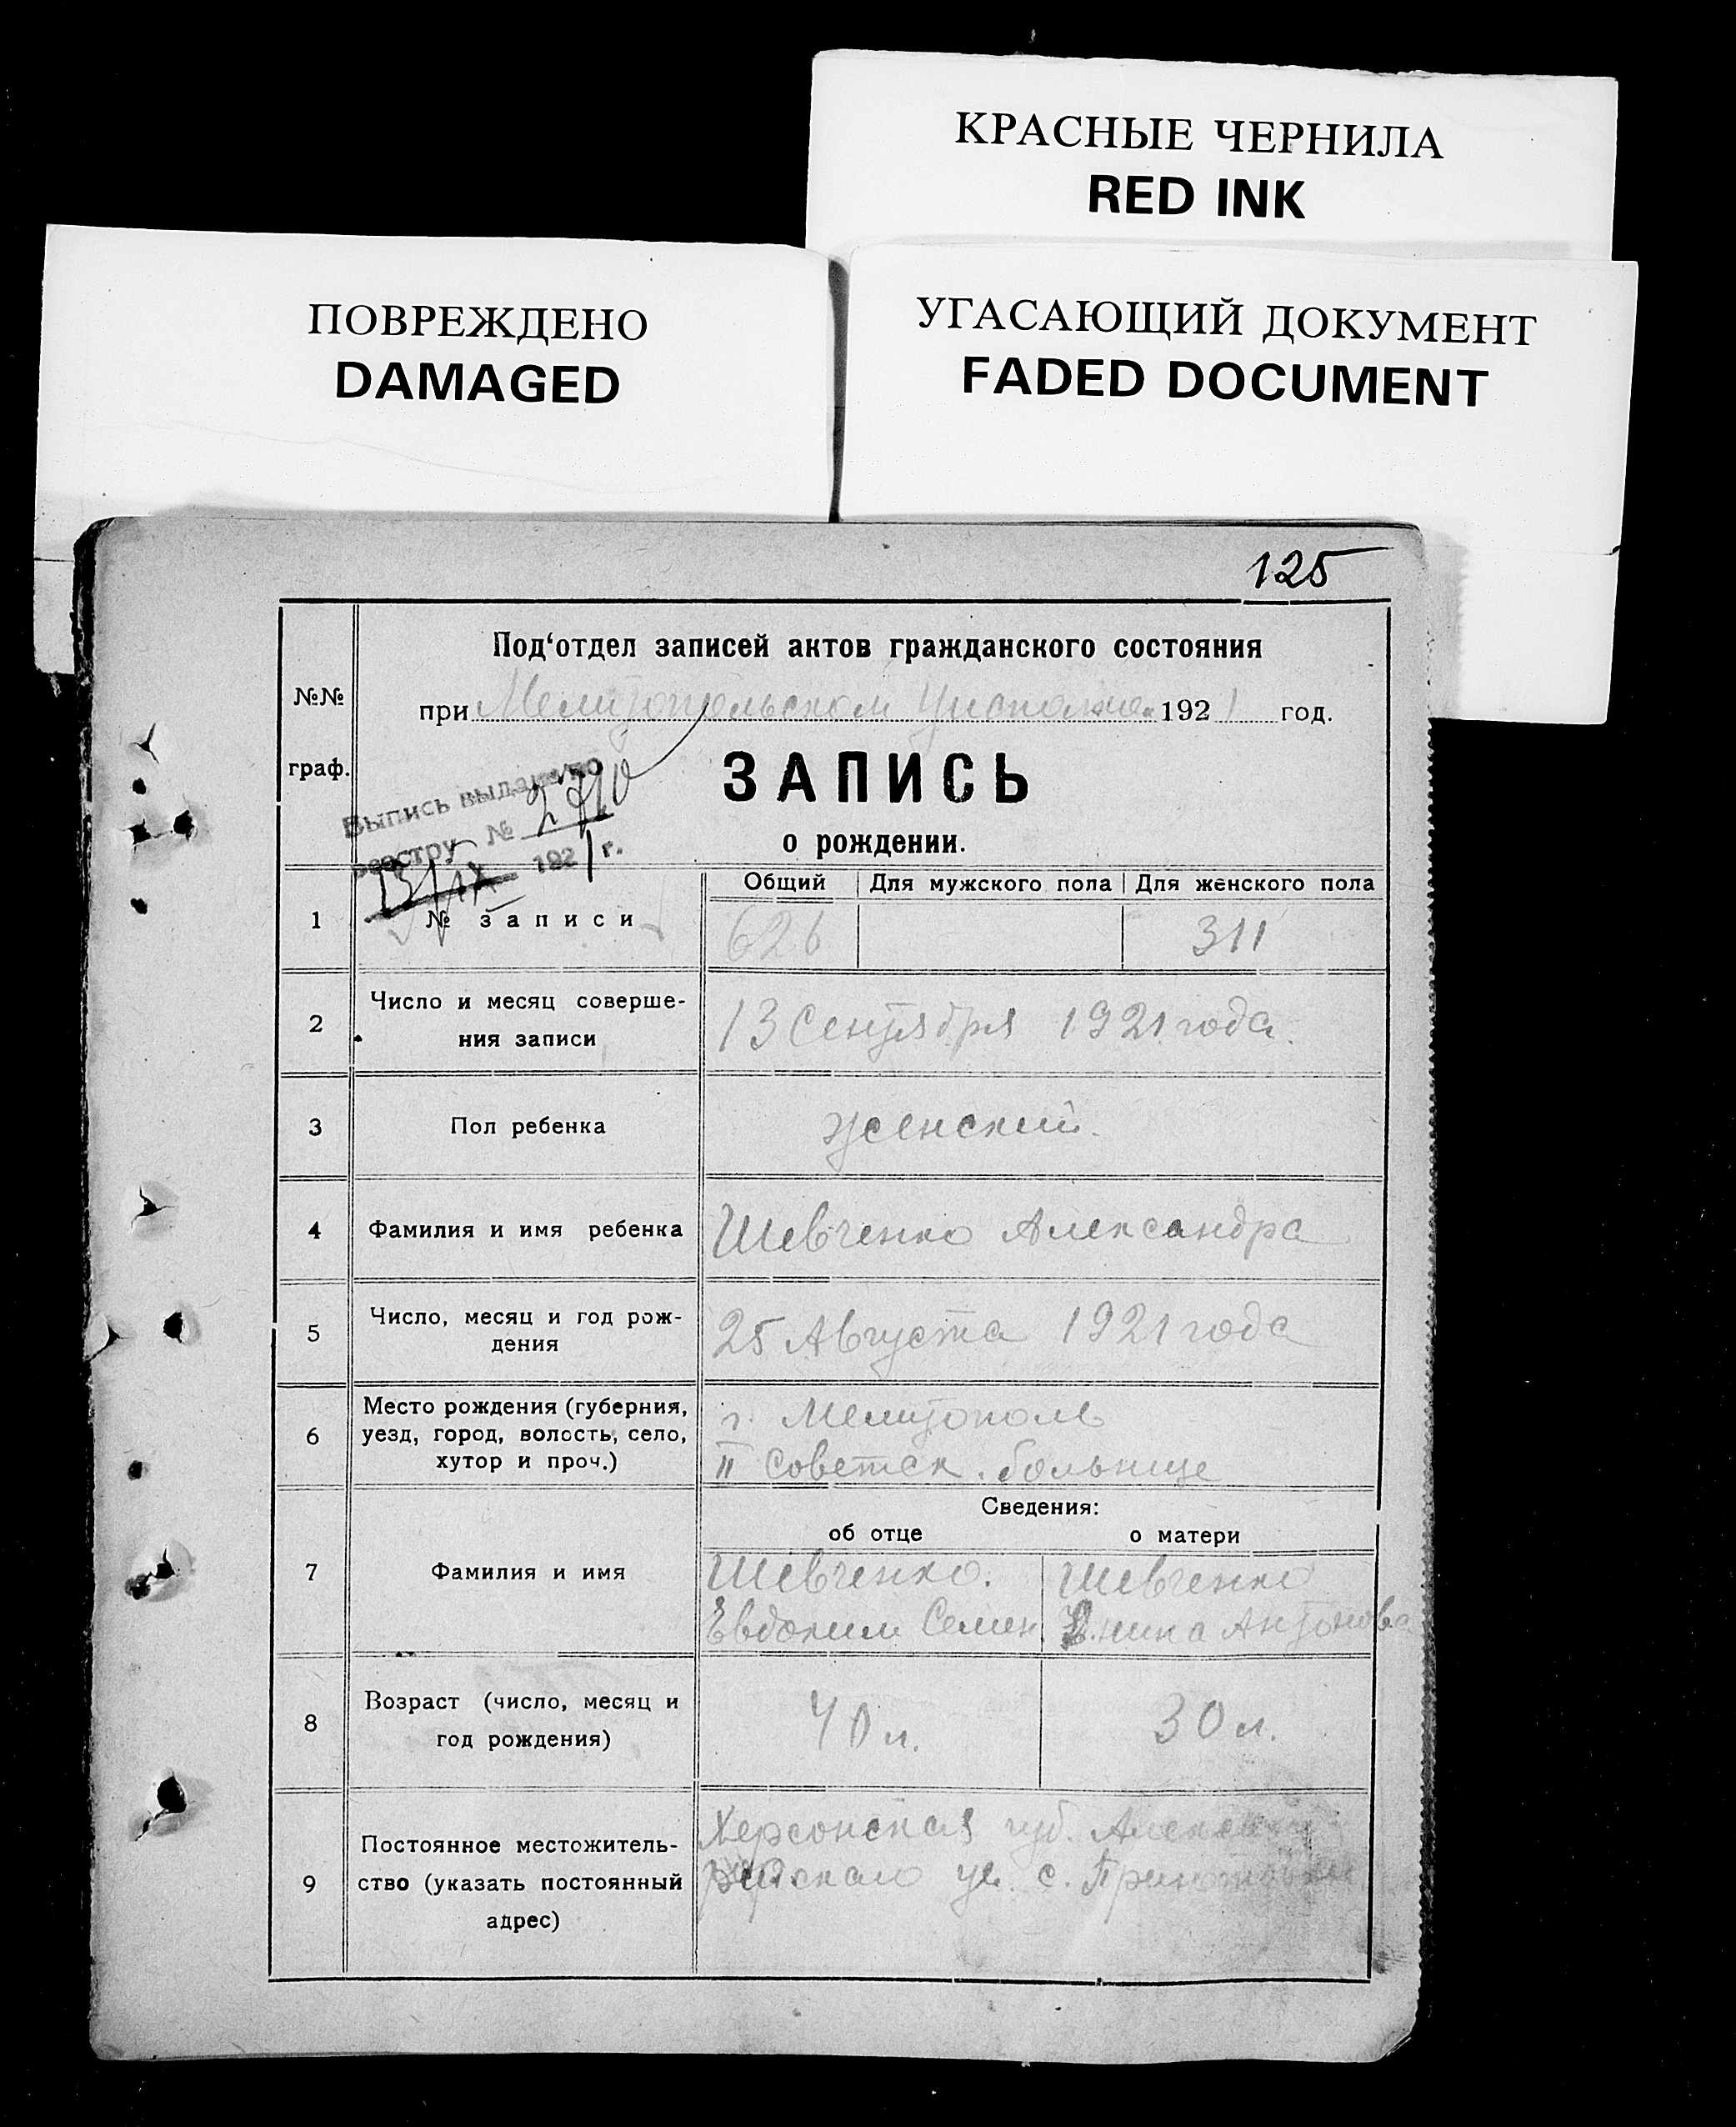 КРАСНЫЕ ЧЕРНИЛА
RED INK
ПОВРЕЖДЕНО
DAMAGED
УГАСАЮЩИЙ ДОКУМЕНТ
FADED DOCUMENT
125
№№
граф.
Под‘отдел записей актов гражданского состояния
при Мелитопольском 1921 год.
ЗАПИСЬ
о рождении.
Выпись выдана по
реестру №
1921 г.
Общий Для мужского пола Для женского пола
1 № записи 626 311
2 Число и месяц соверше-
ния записи
13 Сентября 1921 года.
3 Пол ребенка женский.
4 Фамилия и имя ребенка Шевченко Александра
5 Число, месяц и год рож-
дения
25 Августа 1921 года
6 Место рождения (губерния,
уезд, город, волость, село,
хутор и проч.)
г. Мелитополь
II Советск. больнице
Сведения:
об отце о матери
7 Фамилия и имя
Шевченко. Шевченко
Евдоким Семен. Антонова
8 Возраст (число, месяц и
год рождения)
40 л. 30 л.
9 Постоянное местожитель-
ство (указать постоянный
адрес)
Херсонская губ.
с.